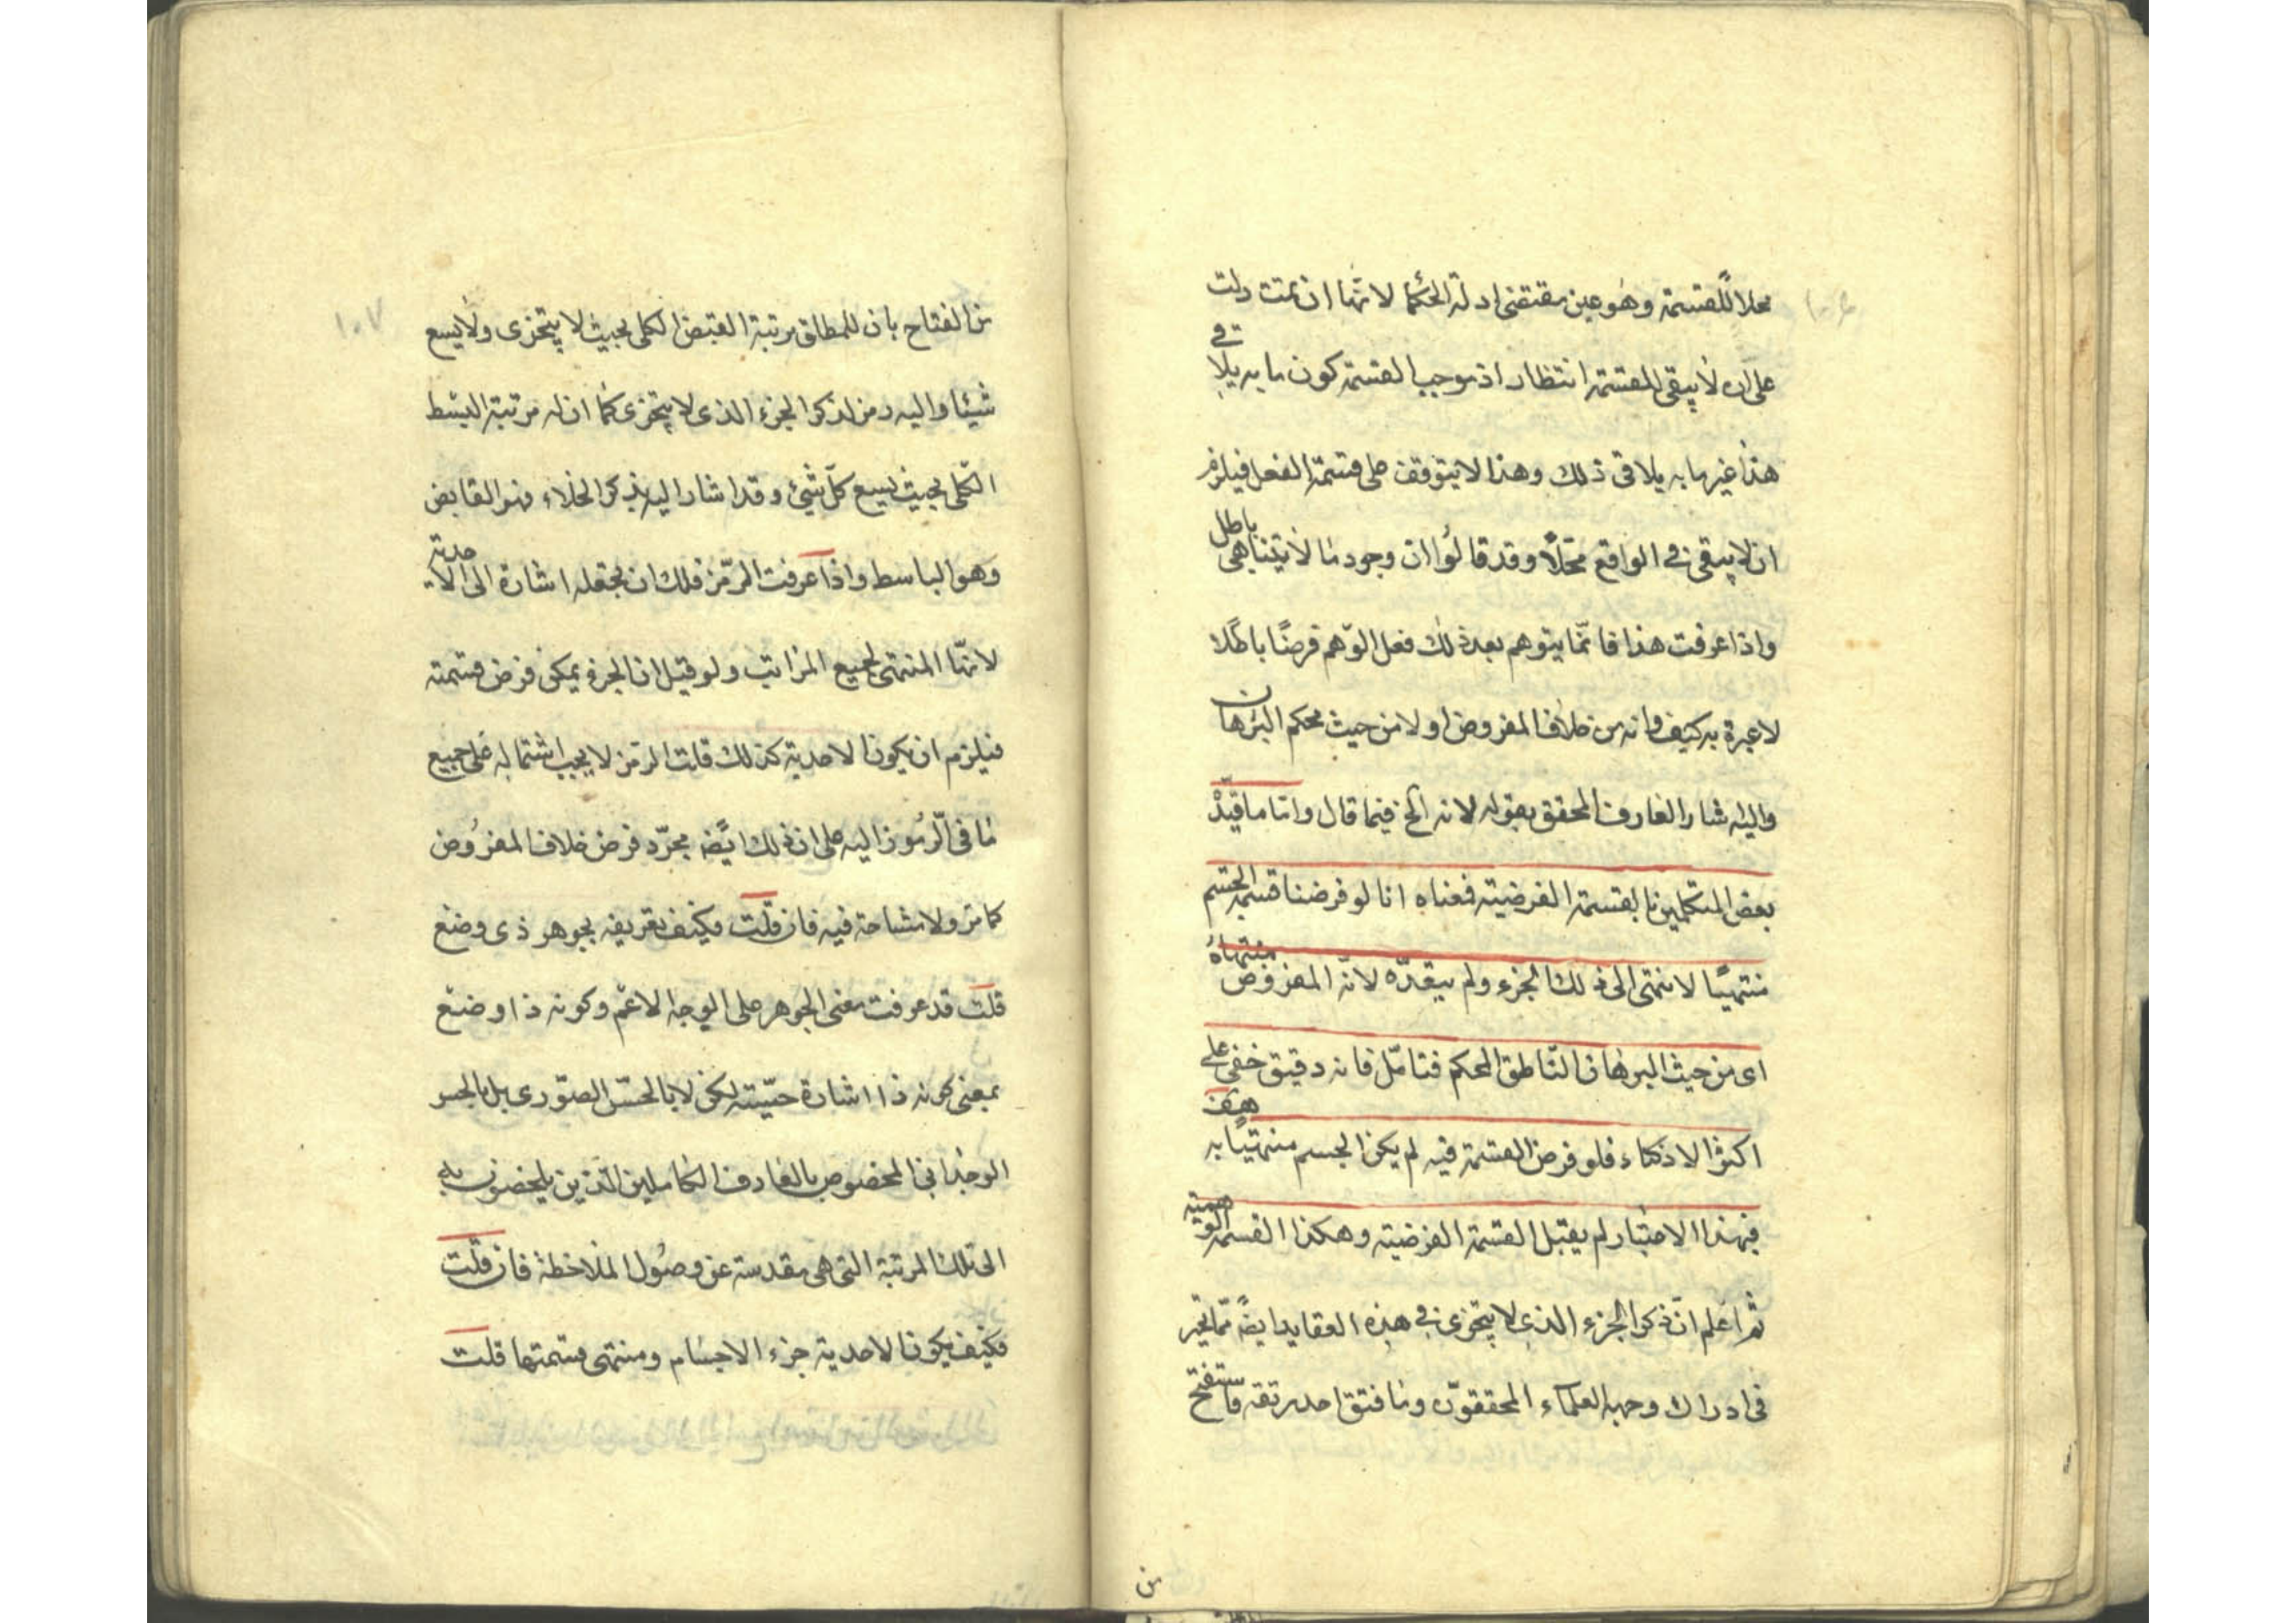 ١٠٦
محلا للقسمة وهو عين مقتضى ادلة الحكما لانها ان تمت دلت
على ان لا يبقى للقسمة انتظار اذ موجب القسمة كون ما به يلاقي
هذا غير ما به يلاقى ذلك وهذا لا يتوقف على قسمة الفعل فيلزم
ان لا يبقى فى الواقع محلا وقد قالوا ان وجود ما لا يتناهى باطل
واذا عرفت هذا فانما يتوهم بعد ذلك فعل الوهم فرضا باطلا
لا عبرة به كيف وانه من خلاف المفروض اولا من حيث محكم البرهان
واليه اشار العارف المحقق بقوله لانه الخ فيما قال واما ما قيد
بعض المتكلمين بالقسمة الفرضية فمعناه انا لو فرضنا قسمة الجسم
منتهيا لانتهى الى ذلك الجزء ولم يتعده لانه المفروض منتهاه
اى من حيث البرهان الناطق المحكم فتامل فانه دقيق خفى على
اكثر الاذكياء فلو فرض القسمة فيه لم يكن الجسم منتهيا به هف
فبهذا الاعتبار لم يقبل القسمة الفرضية وهكذا القسمة الوهمية
ثم اعلم ان ذكر الجزء الذى لا يتجزى فى هذه العقايد ايضا مما تحير
فى ادراك وجهه العلماء المحققون وما فتق احد رتقه فاستفتح
من
١٠٧
من الفتاح بان للمطلق مرتبة القبض الكلى بحيث لا يتجزى ولا يسع
شيئا واليه رمز لذكر الجزء الذى لا يتجزى كما ان له مرتبة البسط
الكلى بحيث يسع كل شيئ وقد اشار اليه بذكر الخلاء فهو القابض
وهو الباسط واذا عرفت الرمز فلك ان تجعله اشارة الى الاحدية
لانها المنتهى لجميع المراتب ولو قيل ان الجزء يمكن فرض قسمته
فيلزم ان يكون الاحدية كذلك قلت الرمز لا يجب اشتماله على جميع
ما فى المرموز اليه على ان ذلك ايضا مجرد فرض خلاف المفروض
كما مر ولا مشاحة فيه فان قلت فكيف تعريفه بجوهر ذى وضع
قلت قد عرفت معنى الجوهر على الوجه الاعم وكونه ذا وضع
بمعنى كونه ذا اشارة حسية لكن لا بالحس الصورى بل بالحس
الوجدانى المخصوص بالعارف الكاملين الذين يلحضون به
الى تلك المرتبة التى هى مقدسة عن وصول الملاحظة فان قلت
فكيف يكون الاحدية جزء الاجسام ومنتهى قسمتها قلت